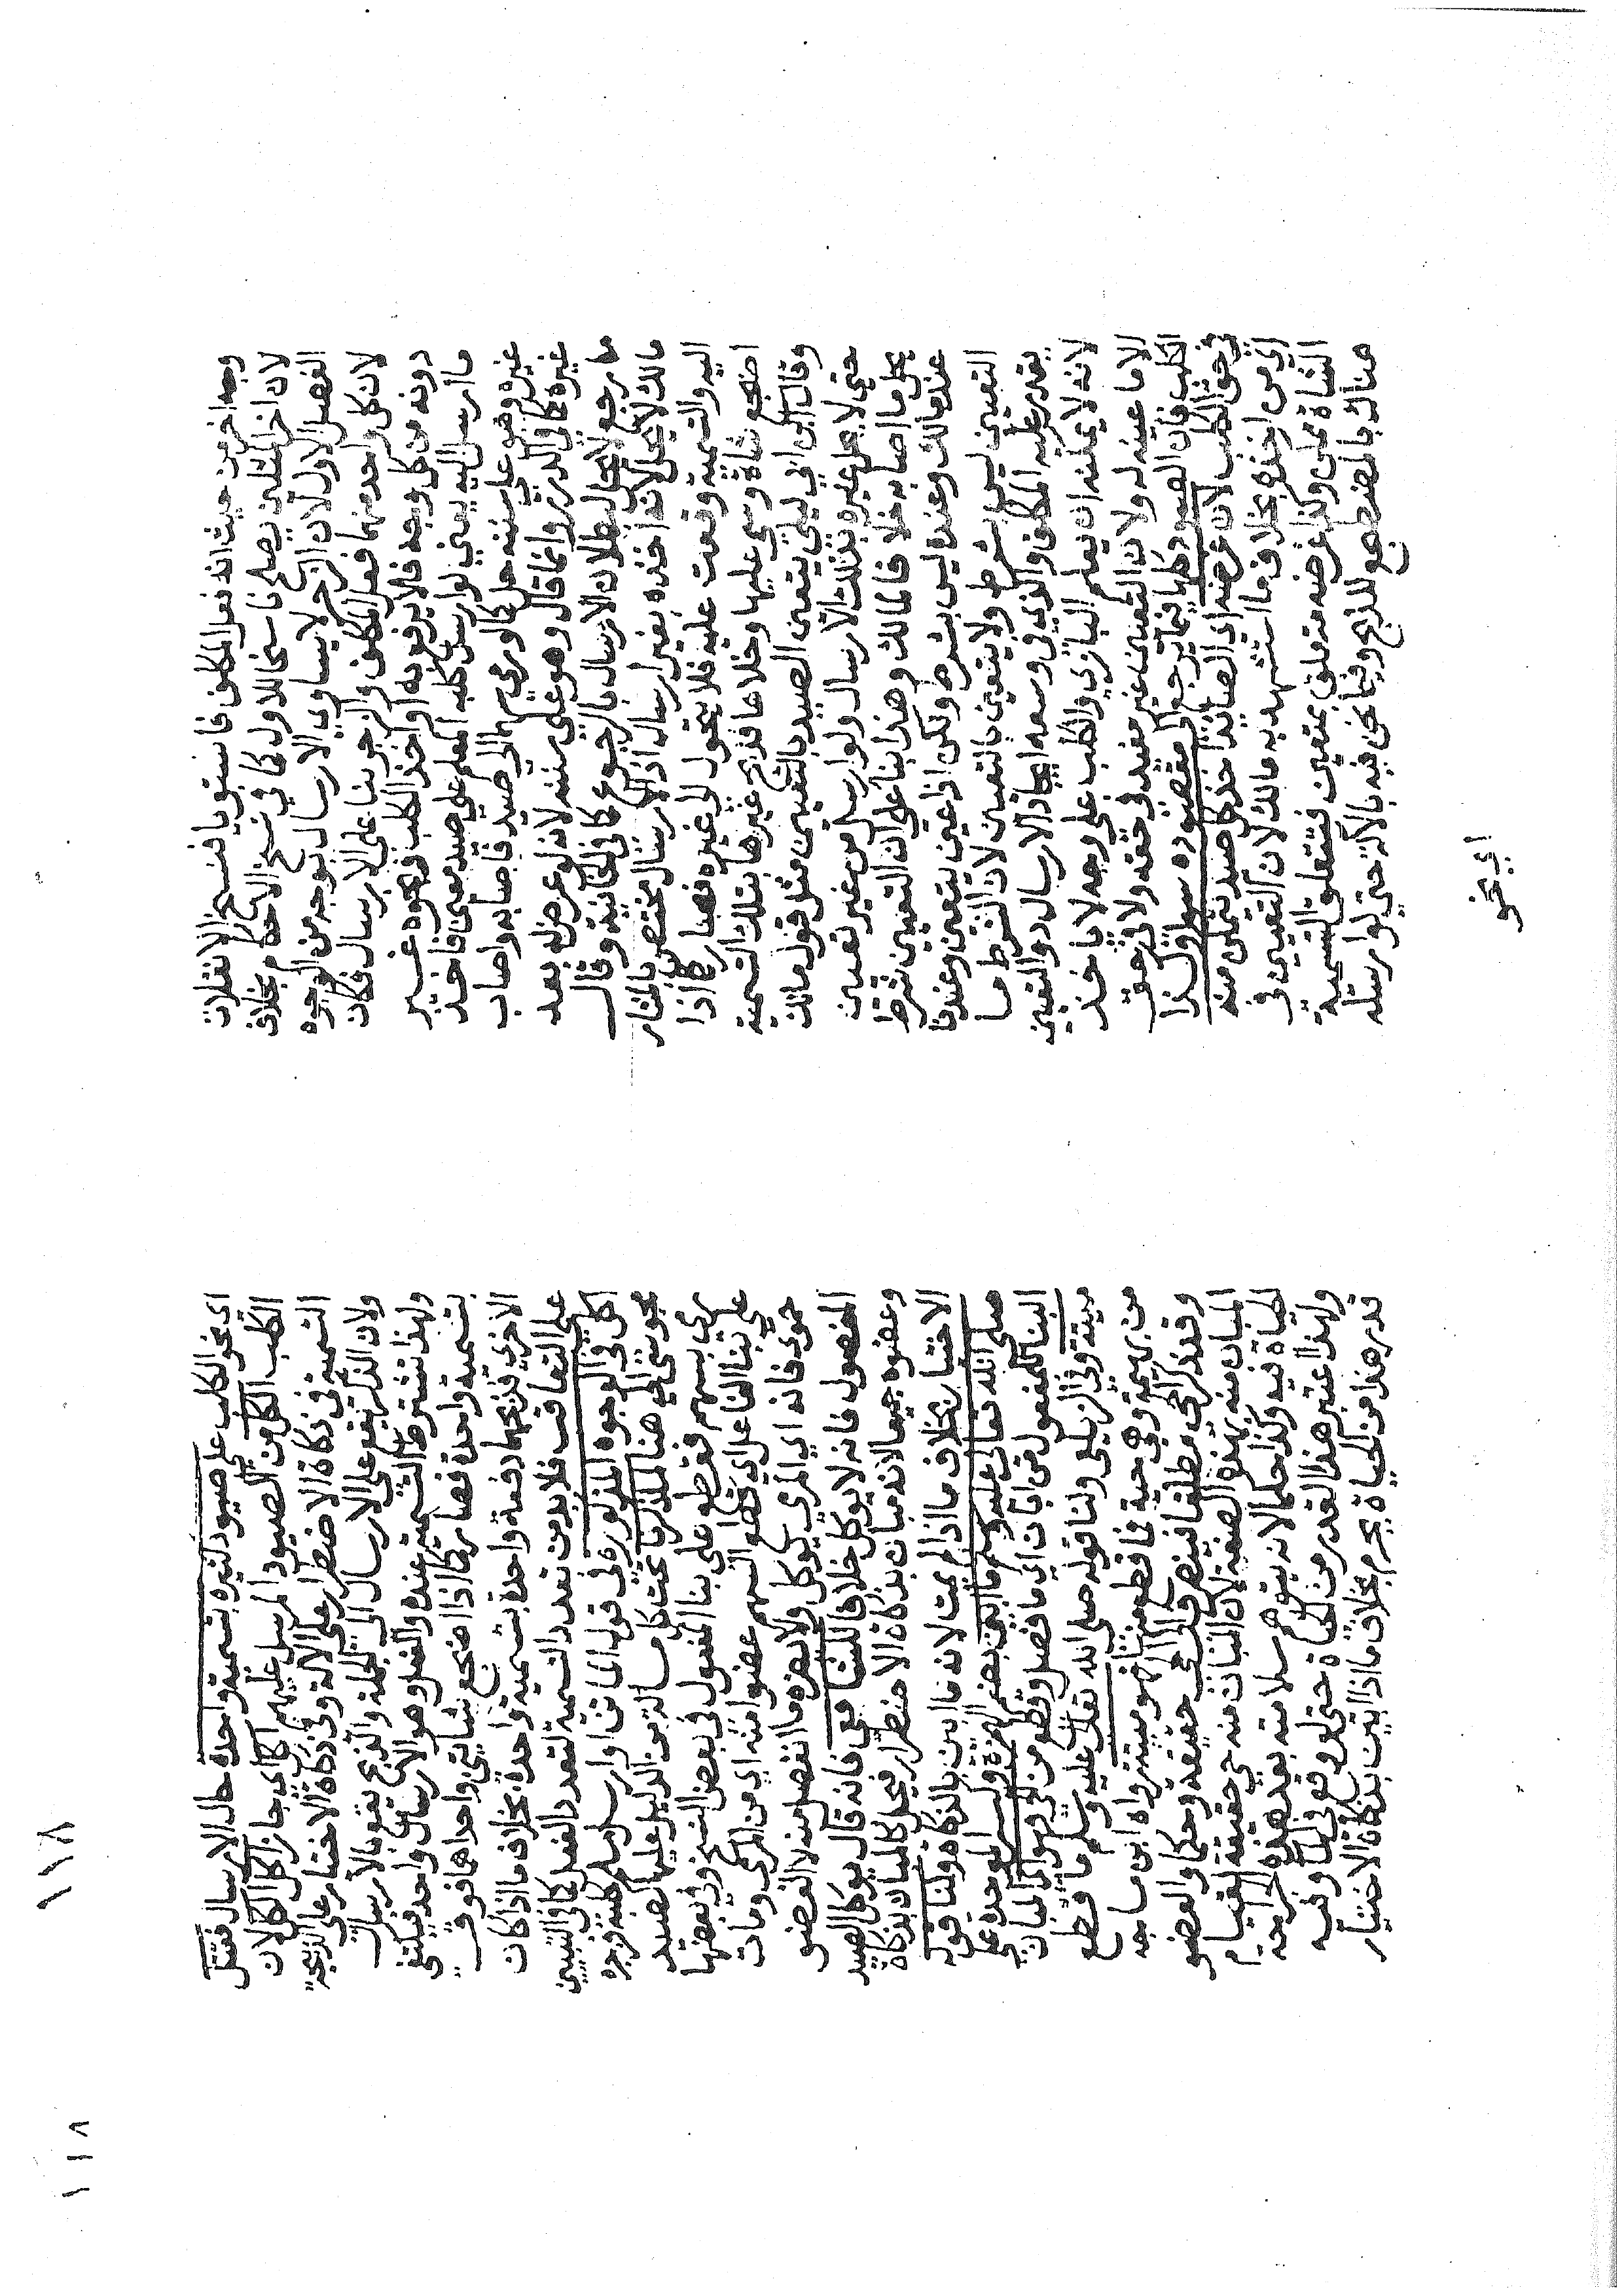 وجه اخر من حيث انه فعل المكلف فاستويا فنسخ الانفلات
لان اخر المثلين يصلح ناسخا للاول كما في نسخ الاحكام بخلاف
الفصل الاول لان الزجر لا يساوي الارسال بوجه من الوجوه
لان كل واحد منهما فعل المكلف والزجر بنا على الارسال فكان
دونه من كل وجه فلا يرفع به او اخذ الكلب ونحوه غير
ما ارسل اليه يعني لو ارسل كلبه المعلم علي صيد معين فاخذ
غيره وهو علي سننه حل كما لو رمي سهما الي صيد فاصابه واصاب
غيره كما في الدرر وانما قال وهو علي سننه لانه لو عرض له بعد
ما رجع لا يحل لبطلان الارسال بالرجوع كما في الخانية وقال
مالك لا يحل لانه اخذه بغير ارسال اذ الارسال مختص بالمشار
اليه والتسمية وقعت عليه فلا يتحول الي غيره فصار كما اذا
اضجع شاة وسمي عليها وخلاها فذبح غيرها بتلك التسمية
وقال ابن ابي ليلي يتعين الصيد بالتعيين مثل قول مالك
حتي لا يحل غيره بذلك الارسال ولو ارسل من غير تعيين
يحل ما اصابه خلافا لمالك وهذا بنا علي ان التعيين شرط
عند مالك وعنده ليس بشرط ولكن اذا عين يتعين وعندنا
التعيين ليس بشرط ولا يتعين بالتعيين لان الشرط ما
يقدر عليه المكلف والذي في وسعه ايجاد الارسال دون التعيين
لانه لا يمكنه ان يعلم البازي والكلب علي وجه لا ياخذ
الا ما عينه له ولان التعيين غير مفيد في حقه ولا في حق
الكلب فان الصيود كلها فيما يرجع الي مقصوده سوا وكذا
في حق الكلب لان غرضه اي الصايد اخذ كل صيد تمكن منه
اي من اخذه بخلاف ما استشهد به مالك لان التعيين في
الشاة ممكن وكذا غرضه متعلق بمعين فتتعلق التسمية
هناك بالمضطجع للذبح وفيما نحن فيه بالالة حتي لو ارسله
اي نحو
١١٨
اي نحو الكلب علي صيود كثيرة بتسمية واحدة حال الارسال فقتل
الكلب الكل من الصيود المرسل عليهم اكل اي جاز اكل الكل لان
التسمية في ذكاة الاضطرار علي الالة وفي ذكاة الاختيار علي الذبيحة
ولان الذكر يقع علي الارسال الي الجملة والذبح يقع بالارسال
ولهذا تشترط التسمية عنده والفعل وهو الارسال واحد فيكتفي
بتسمية واحدة فصار كما اذا اضجع شاتين واحداهما فوق
الاخري فذبحهما دفعة واحدة بتسمية واحدة بخلاف ما اذا كان
علي التعاقب فلا بد من تعدد التسمية لتعدد الفعل كما في التبيين
اكل في الوجوه المذكورة في قوله او ارسل مسلم كلبه فزجره
مجوسي الي هنا لما ذكرنا تحت كل مسالة من الدليل عليها كصيد
رمي بسهم فقطع علي بنا المفعول في بعض النسخ وفي بعضها
علي بنا الفاعل اي قطع السهم عضوا منه اي من المرمي ومات
حموي فانه اي المرمي يوكل ولا يضره ما انفصل منه لا العضو
المفصول فانه لا يوكل خلافا للشافعي فانه قال يوكل الصيد
وعضوه جميعا لانه مبان بذكاة الاضطرار فيحل كالمبان بذكاة
الاختيار بخلاف ما اذا لم يمت لانه ما ابين بالذكاة ولنا قوله
صلي الله تعالي عليه وسلم ما ابين بضم الهمزة وكسر الموحدة علي
البنا للمفعول من ابان اي ما فصل وقطع من الحي فهو اي المبان
ميتة وفي الزيلعي ولنا قوله صلي الله تعالي عليه وسلم ما قطع
من بهيمة وهي حية فما قطع منها فهو ميتة رواه ابن ماجه
وقد ذكر الحي مطلقا فينصرف الي الحي حقيقة وحكما والعضو
المبان منه بهذه الصفة لان المبان منه حي حقيقة لقيام
الحياة فيه وكذا حكما لانه يتوهم سلامته بعد هذه الجراحة
ولهذا اعتبر هذا القدر من الحياة حتي لو وقع في الما وفيه
قدر هذا من الحياة يحرم بخلاف ما اذا ابين بذكاة الاختيار
١١٨